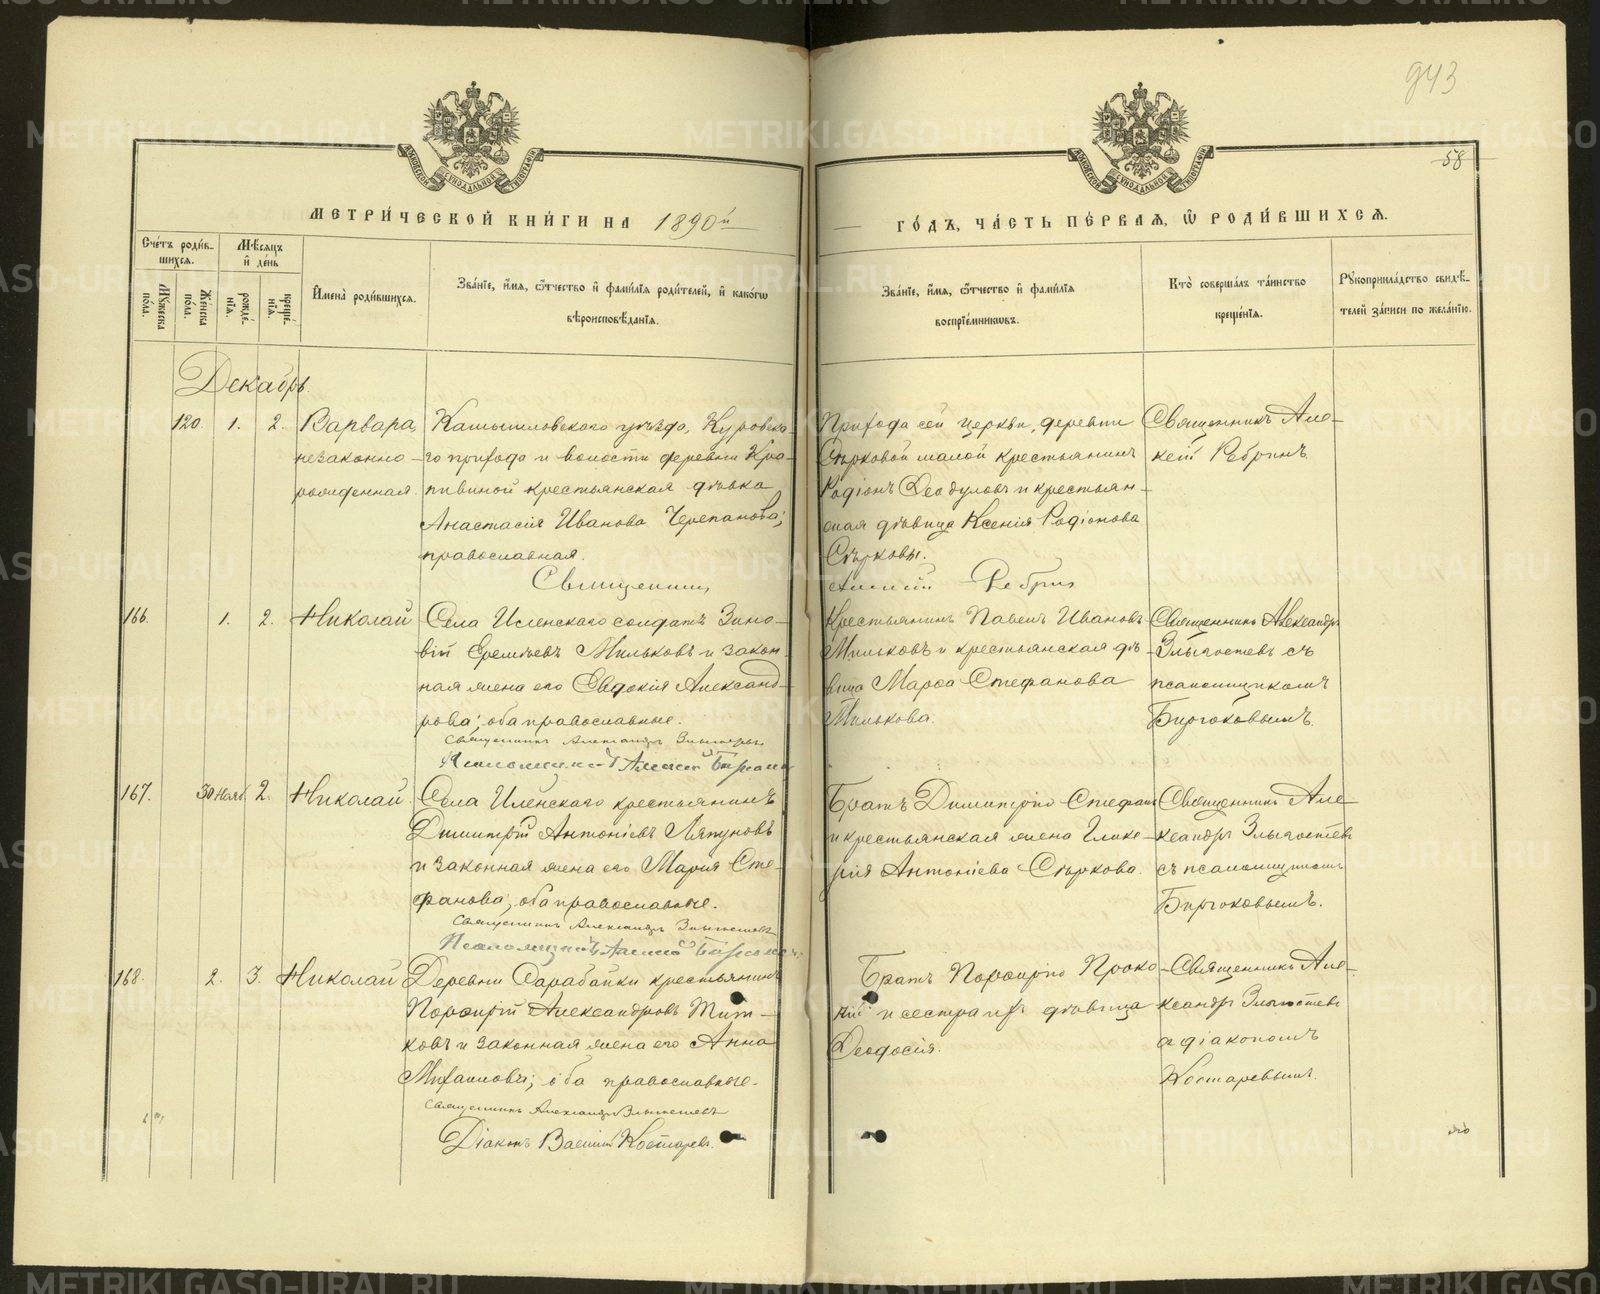 943
58
МЕТРИ́ЧЕСКОЙ КНИ́ГИ НА 1890й
ГО́ДЪ, ЧА́СТЬ ПЕ́РВАЯ, Ѡ РОДИ́ВШИХСЯ.
Сче́тъ роди́в-
шихся.
Мѣ́сяцъ
и҆ де́нь
Мꙋ́жеска по́ла.
Же́нска по́ла.
рожде́-
нїя.
креще́-
нїя.
И҆мена̀ роди́вшихся.
Зва́нїе, и҆́мя, ѻ҆́тчество и҆ фами́лїя роди́телей, и҆ како́гѡ
вѣроисповѣ́данїя.
Зва́нїе, и҆́мя, ѻ҆́тчество и҆ фами́лїя
воспрїе́мникѡвъ.
Кто̀ соверша́лъ та́инство
креще́нїя.
Рꙋкоприкла́дство свидѣ́-
телей за́писи по жела́нїю.
Декабрь.
120. 1. 2. Варвара,
незаконно-
рожденная.
Камышловскаго уѣзда, Куровска-
го прихода и волости деревни Кра-
пивиной крестьянская дѣвка
Анастасія Иванова Черепанова;
православная.
Священникъ
Прихода сей церкви, деревни
Сѣрковой малой крестьянинъ
Родіонъ Ѳеодуловъ и крестьян-
ская дѣвица Ксенія Родіонова
Сѣрковы.
Алексій Ребринъ
Священникъ Але-
ксѣй Ребринъ
166. 1. 2. Николай
Села Иленскаго солдатъ Зино-
вій Еремѣевъ Мильковъ и закон-
ная жена его Евдокія Александ-
рова; оба православные.
Священникъ Александръ Злыгостевъ
Псаломщикъ Алексій Бирюковъ
Крестьянинъ Павелъ Ивановъ
Мильковъ и крестьянская дѣ-
вица Марѳа Стефанова
Милькова.
Священникъ Александръ
Злыгостевъ съ
псаломщикомъ
Бирюковымъ.
167. 30 Нояб. 2. Николай
Села Иленскаго крестьянинъ
Димитрій Антоніевъ Ляпуновъ
и законная жена его Марія Сте-
фанова; оба православные.
Священникъ Александръ Злыгостевъ
Псаломщикъ Алексій Бирюковъ
Братъ Димитрію Стефанъ
и крестьянская жена Глике-
рія Антоніева Сѣркова.
Священникъ Але-
ксандръ Злыгостевъ
съ псаломщикомъ
Бирюковымъ.
168. 2. 3. Николай
Деревни Сарабайки крестьянинъ
Порфирій Александровъ Тит-
ковъ и законная жена его Анна
Михаилова; оба православные.
Священникъ Александръ Злыгостевъ
Діаконъ Василій Костаревъ.
Братъ Порфирію Проко-
пій и сестра ихъ дѣвица
Ѳеодосія.
Священникъ Але-
ксандръ Злыгостевъ
съ діакономъ
Костаревымъ.